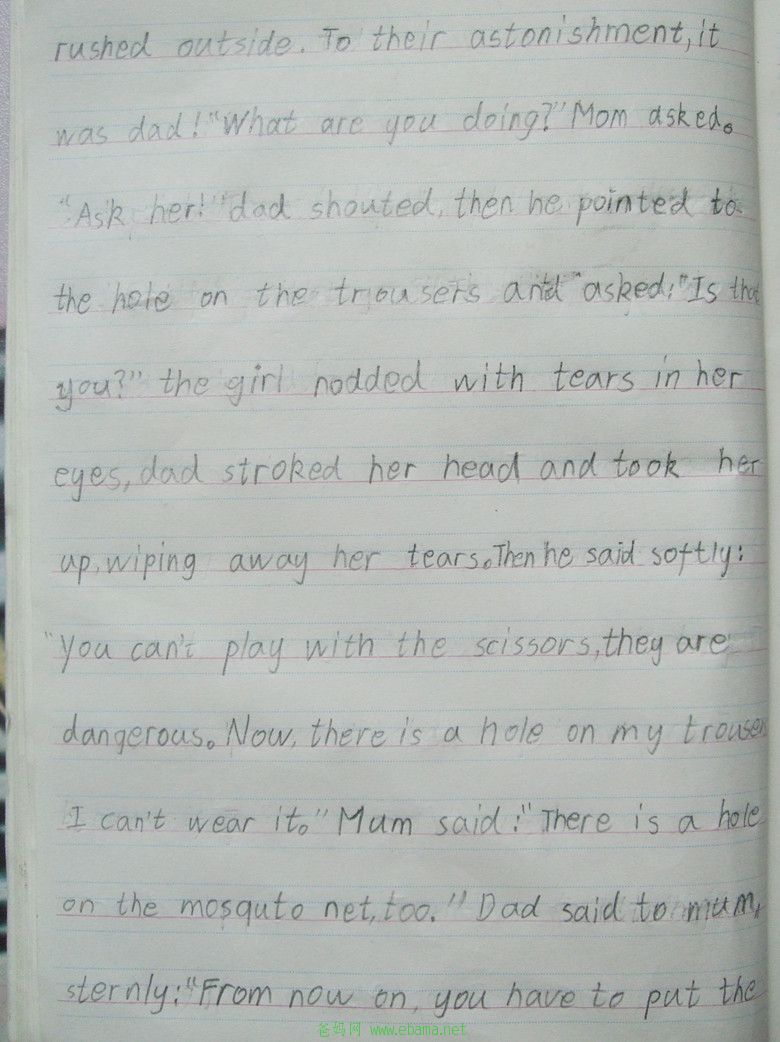 rushed outside. To their astonishment, it
was dad! "What are you doing?" Mom asked。
"Ask her!" dad shouted, then he pointed to
the hole on the trousers and asked: "Is that
you?" the girl nodded with tears in her
eyes, dad stroked her head and took her
up, wiping away her tears。Then he said softly:
"You can't play with the scissors, they are
dangerous。Now, there is a hole on my trouser
I can't wear it。" Mum said: "There is a hole
on the mosquto net, too." Dad said to mum,
sternly: "From now on, you have to put the
爸妈网 www.ebama.net